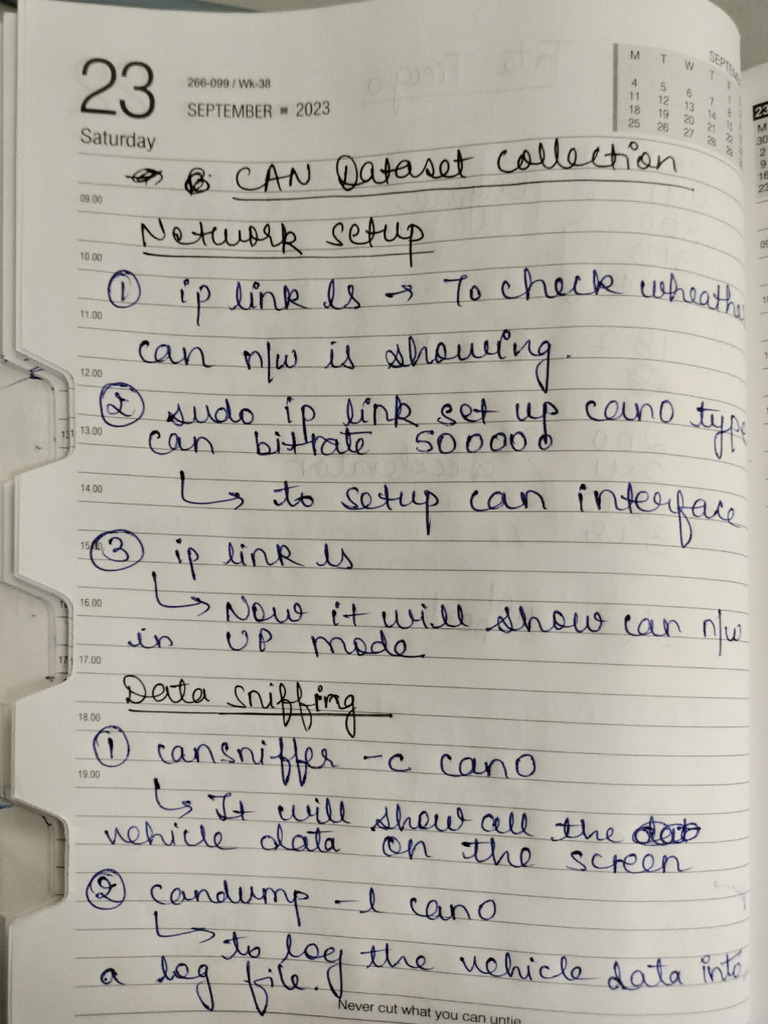 23
266-099 / Wk-38
SEPTEMBER 2023
Saturday
SEPTEM
M T W T F
4 5 6 7 1
11 12 13 14 8
18 19 20 21
25 26 27 28
CAN Dataset collection
09.00
Network setup
10.00
① ip link ls → To check wheathe
11.00
can n/w is showing.
12.00
② sudo ip link set up can0 typ
13.00
can bitrate 500000
14.00
↳ to setup can interface
③ ip link ls
16.00
↳ Now it will show can n/w
in UP mode
17.00
Data sniffing
18.00
① cansniffer -c can0
19.00
↳ It will show all the
vehicle data on the screen
② candump -l can0
↳ to log the vehicle data into
a log file.
Never cut what you can untie